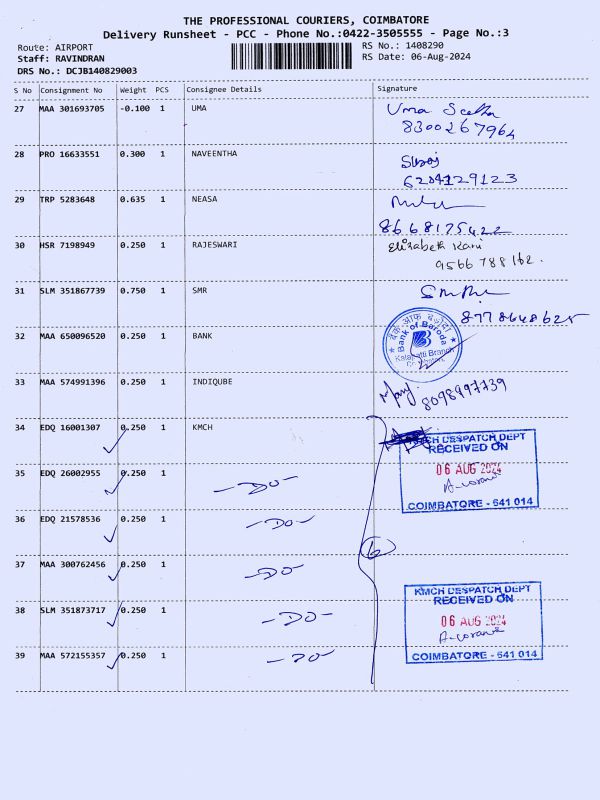 THE PROFESSIONAL COURIERS, COIMBATORE
Delivery Runsheet - PCC - Phone No.:0422-3505555 - Page No.:3
Route: AIRPORT RS No.: 1408290
Staff: RAVINDRAN RS Date: 06-Aug-2024
DRS No.: DCJB140829003
S No Consignment No Weight PCS Consignee Details Signature
27 MAA 301693705 -0.100 1 UMA Uma
8300267964
28 PRO 16633551 0.300 1 NAVEENTHA
6204129123
29 TRP 5283648 0.635 1 NEASA
8668175422
30 HSR 7198949 0.250 1 RAJESWARI Elizabeth Rani
9566788162.
31 SLM 351867739 0.750 1 SMR
8778648625
32 MAA 650096520 0.250 1 BANK
बैंक ऑफ़ बड़ौदा
Bank of Baroda
Kalapatti Branch
Coimbatore
33 MAA 574991396 0.250 1 INDIQUBE Mary
8098997739
34 EDQ 16001307 0.250 1 KMCH
KMCH DESPATCH DEPT
RECEIVED ON
06 AUG 2024
COIMBATORE - 641 014
35 EDQ 26002955 0.250 1 -DO-
36 EDQ 21578536 0.250 1 -DO-
6
37 MAA 300762456 0.250 1 -DO-
38 SLM 351873717 0.250 1 -DO-
KMCH DESPATCH DEPT
RECEIVED ON
06 AUG 2024
COIMBATORE - 641 014
39 MAA 572155357 0.250 1 -DO-